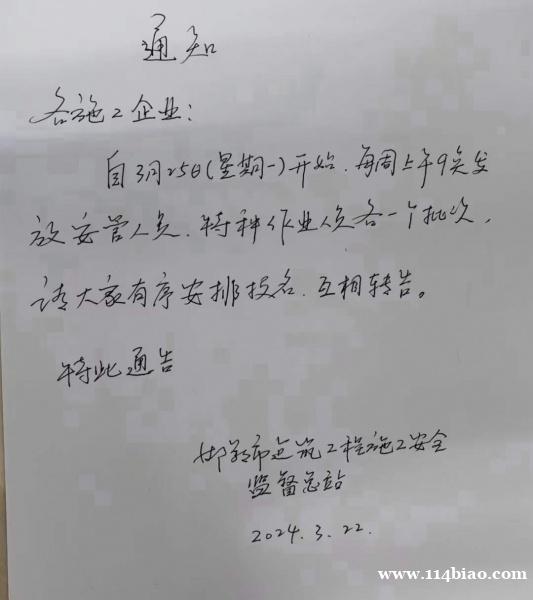 通知
各施工企业：
自3月25日(星期一)开始.每周上午9点发
放安管人员.特种作业人员各一个批次,
请大家有序安排报名.互相转告。
特此通告
邯郸市建筑工程施工安全
监督总站
2024.3.22.
www.114biao.com